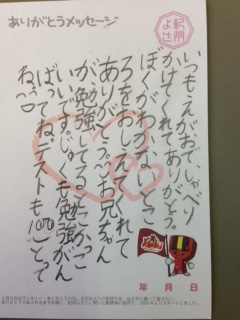 ありがとうメッセージ
いつもえがおで、しゃべり
かけてくれてありがとう。
ぼくがわかんないとこ
ろをおしえてくれて
ありがとう。お兄ちゃん
が勉強してるとこかっこ
いいです。じゅくも勉強がん
ばってねテストも100ことって
ね
年 月 日